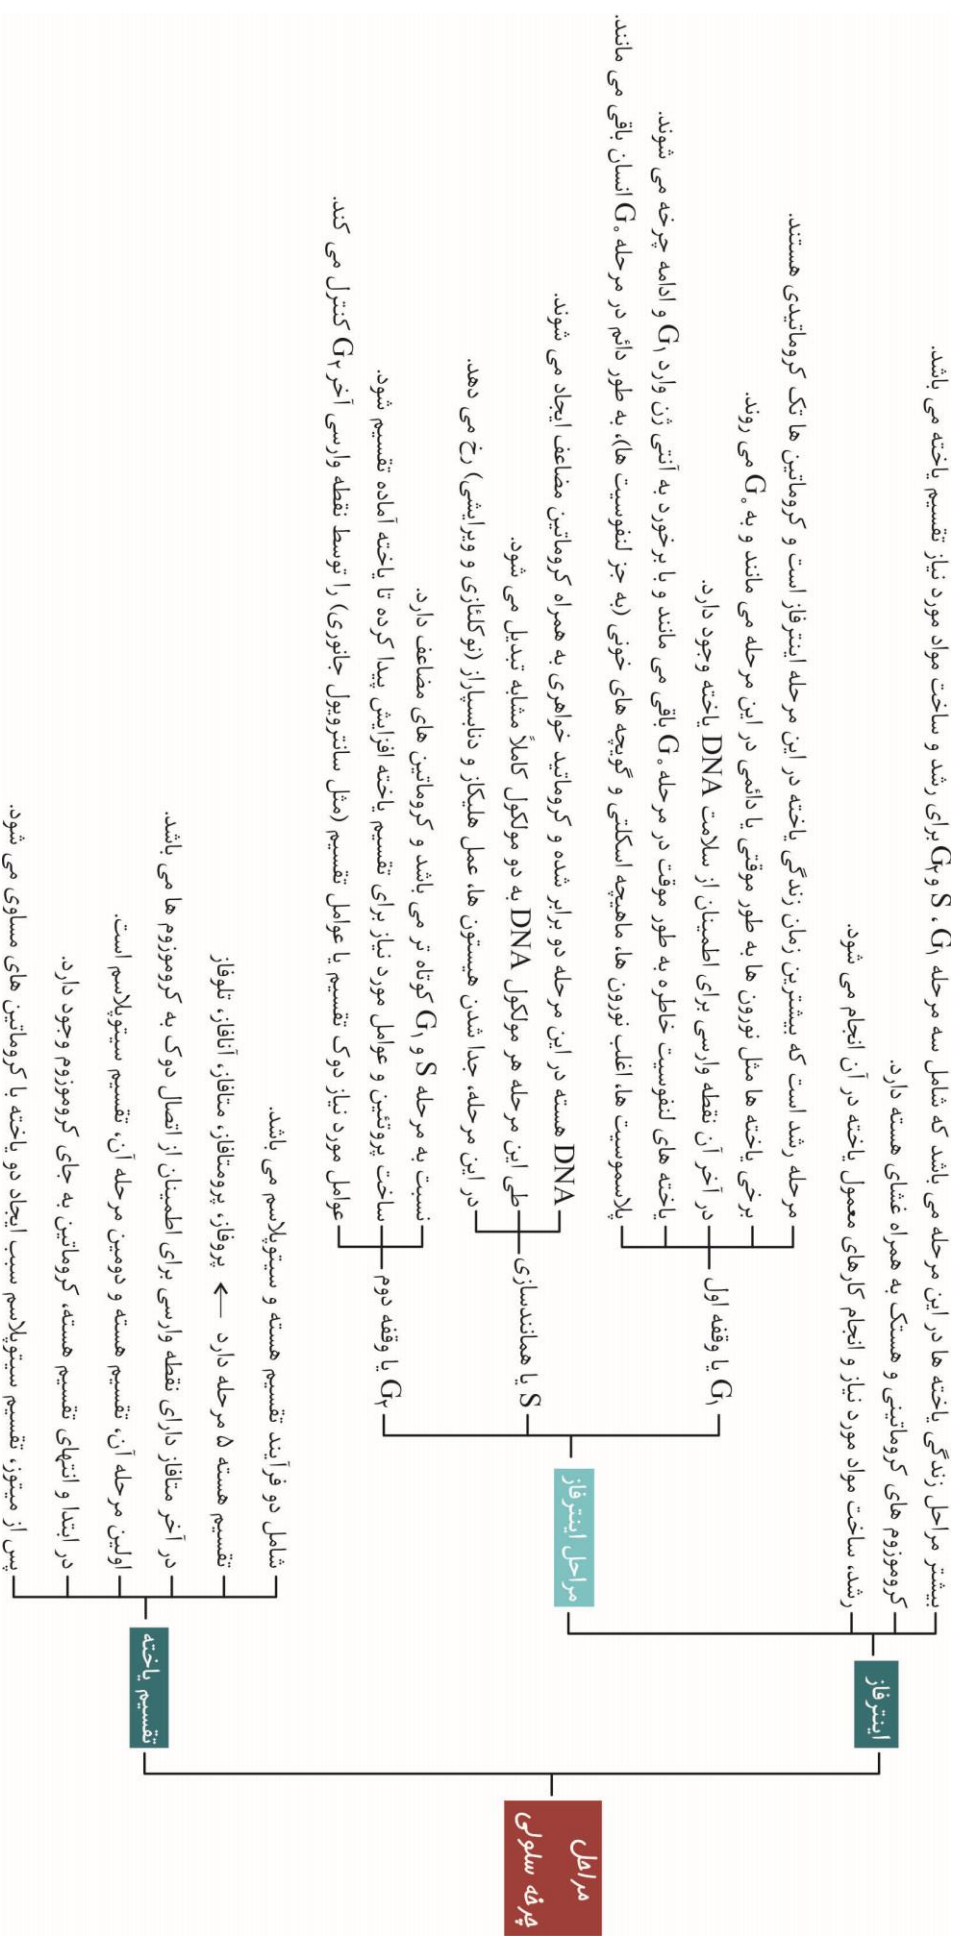 مراحل
چرخه سلولی
اینترفاز
بیشتر مراحل زندگی یاخته ها در این مرحله می باشد که شامل سه مرحله G۱ ، S و G۲ برای رشد و ساخت مواد مورد نیاز تقسیم یاخته می باشد.
کروموزوم های کروماتینی و هستک به همراه غشای هسته دارد.
رشد، ساخت مواد مورد نیاز و انجام کارهای معمول یاخته در آن انجام می شود.
مراحل اینترفاز
G۱ یا وقفه اول
مرحله رشد است که بیشترین زمان زندگی یاخته در این مرحله اینترفاز است و کروماتین ها تک کروماتیدی هستند.
برخی یاخته ها مثل نورون ها به طور موقتی یا دائمی در این مرحله می مانند و به G۰ می روند.
در آخر آن نقطه وارسی برای اطمینان از سلامت DNA یاخته وجود دارد.
یاخته های لنفوسیت خاطره به طور موقت در مرحله G۰ باقی می مانند و با برخورد به آنتی ژن وارد G۱ و ادامه چرخه می شوند.
پلاسموسیت ها، اغلب نورون ها، ماهیچه اسکلتی و گویچه های خونی (به جز لنفوسیت ها)، به طور دائم در مرحله G۰ انسان باقی می مانند.
S یا همانندسازی
DNA هسته در این مرحله دو برابر شده و کروماتید خواهری به همراه کروماتین مضاعف ایجاد می شوند.
طی این مرحله هر مولکول DNA به دو مولکول کاملاً مشابه تبدیل می شود.
در این مرحله، جدا شدن هیستون ها، عمل هلیکاز و دنابسپاراز (نوکلئازی و ویرایشی) رخ می دهد.
G۲ یا وقفه دوم
نسبت به مرحله S و G۱ کوتاه تر می باشد و کروماتین های مضاعف دارد.
ساخت پروتئین و عوامل مورد نیاز برای تقسیم یاخته افزایش پیدا کرده تا یاخته آماده تقسیم شود.
عوامل مورد نیاز دوک تقسیم یا عوامل تقسیم (مثل سانتریول جانوری) را توسط نقطه وارسی آخر G۲ کنترل می کند.
تقسیم یاخته
شامل دو فرآیند تقسیم هسته و سیتوپلاسم می باشد.
تقسیم هسته ۵ مرحله دارد ← پروفاز، پرومتافاز، متافاز، آنافاز، تلوفاز
در آخر متافاز دارای نقطه وارسی برای اطمینان از اتصال دوک به کروموزوم ها می باشد.
اولین مرحله آن، تقسیم هسته و دومین مرحله آن، تقسیم سیتوپلاسم است.
در ابتدا و انتهای تقسیم هسته، کروماتین به جای کروموزوم وجود دارد.
پس از میتوز، تقسیم سیتوپلاسم سبب ایجاد دو یاخته با کروماتین های مساوی می شود.